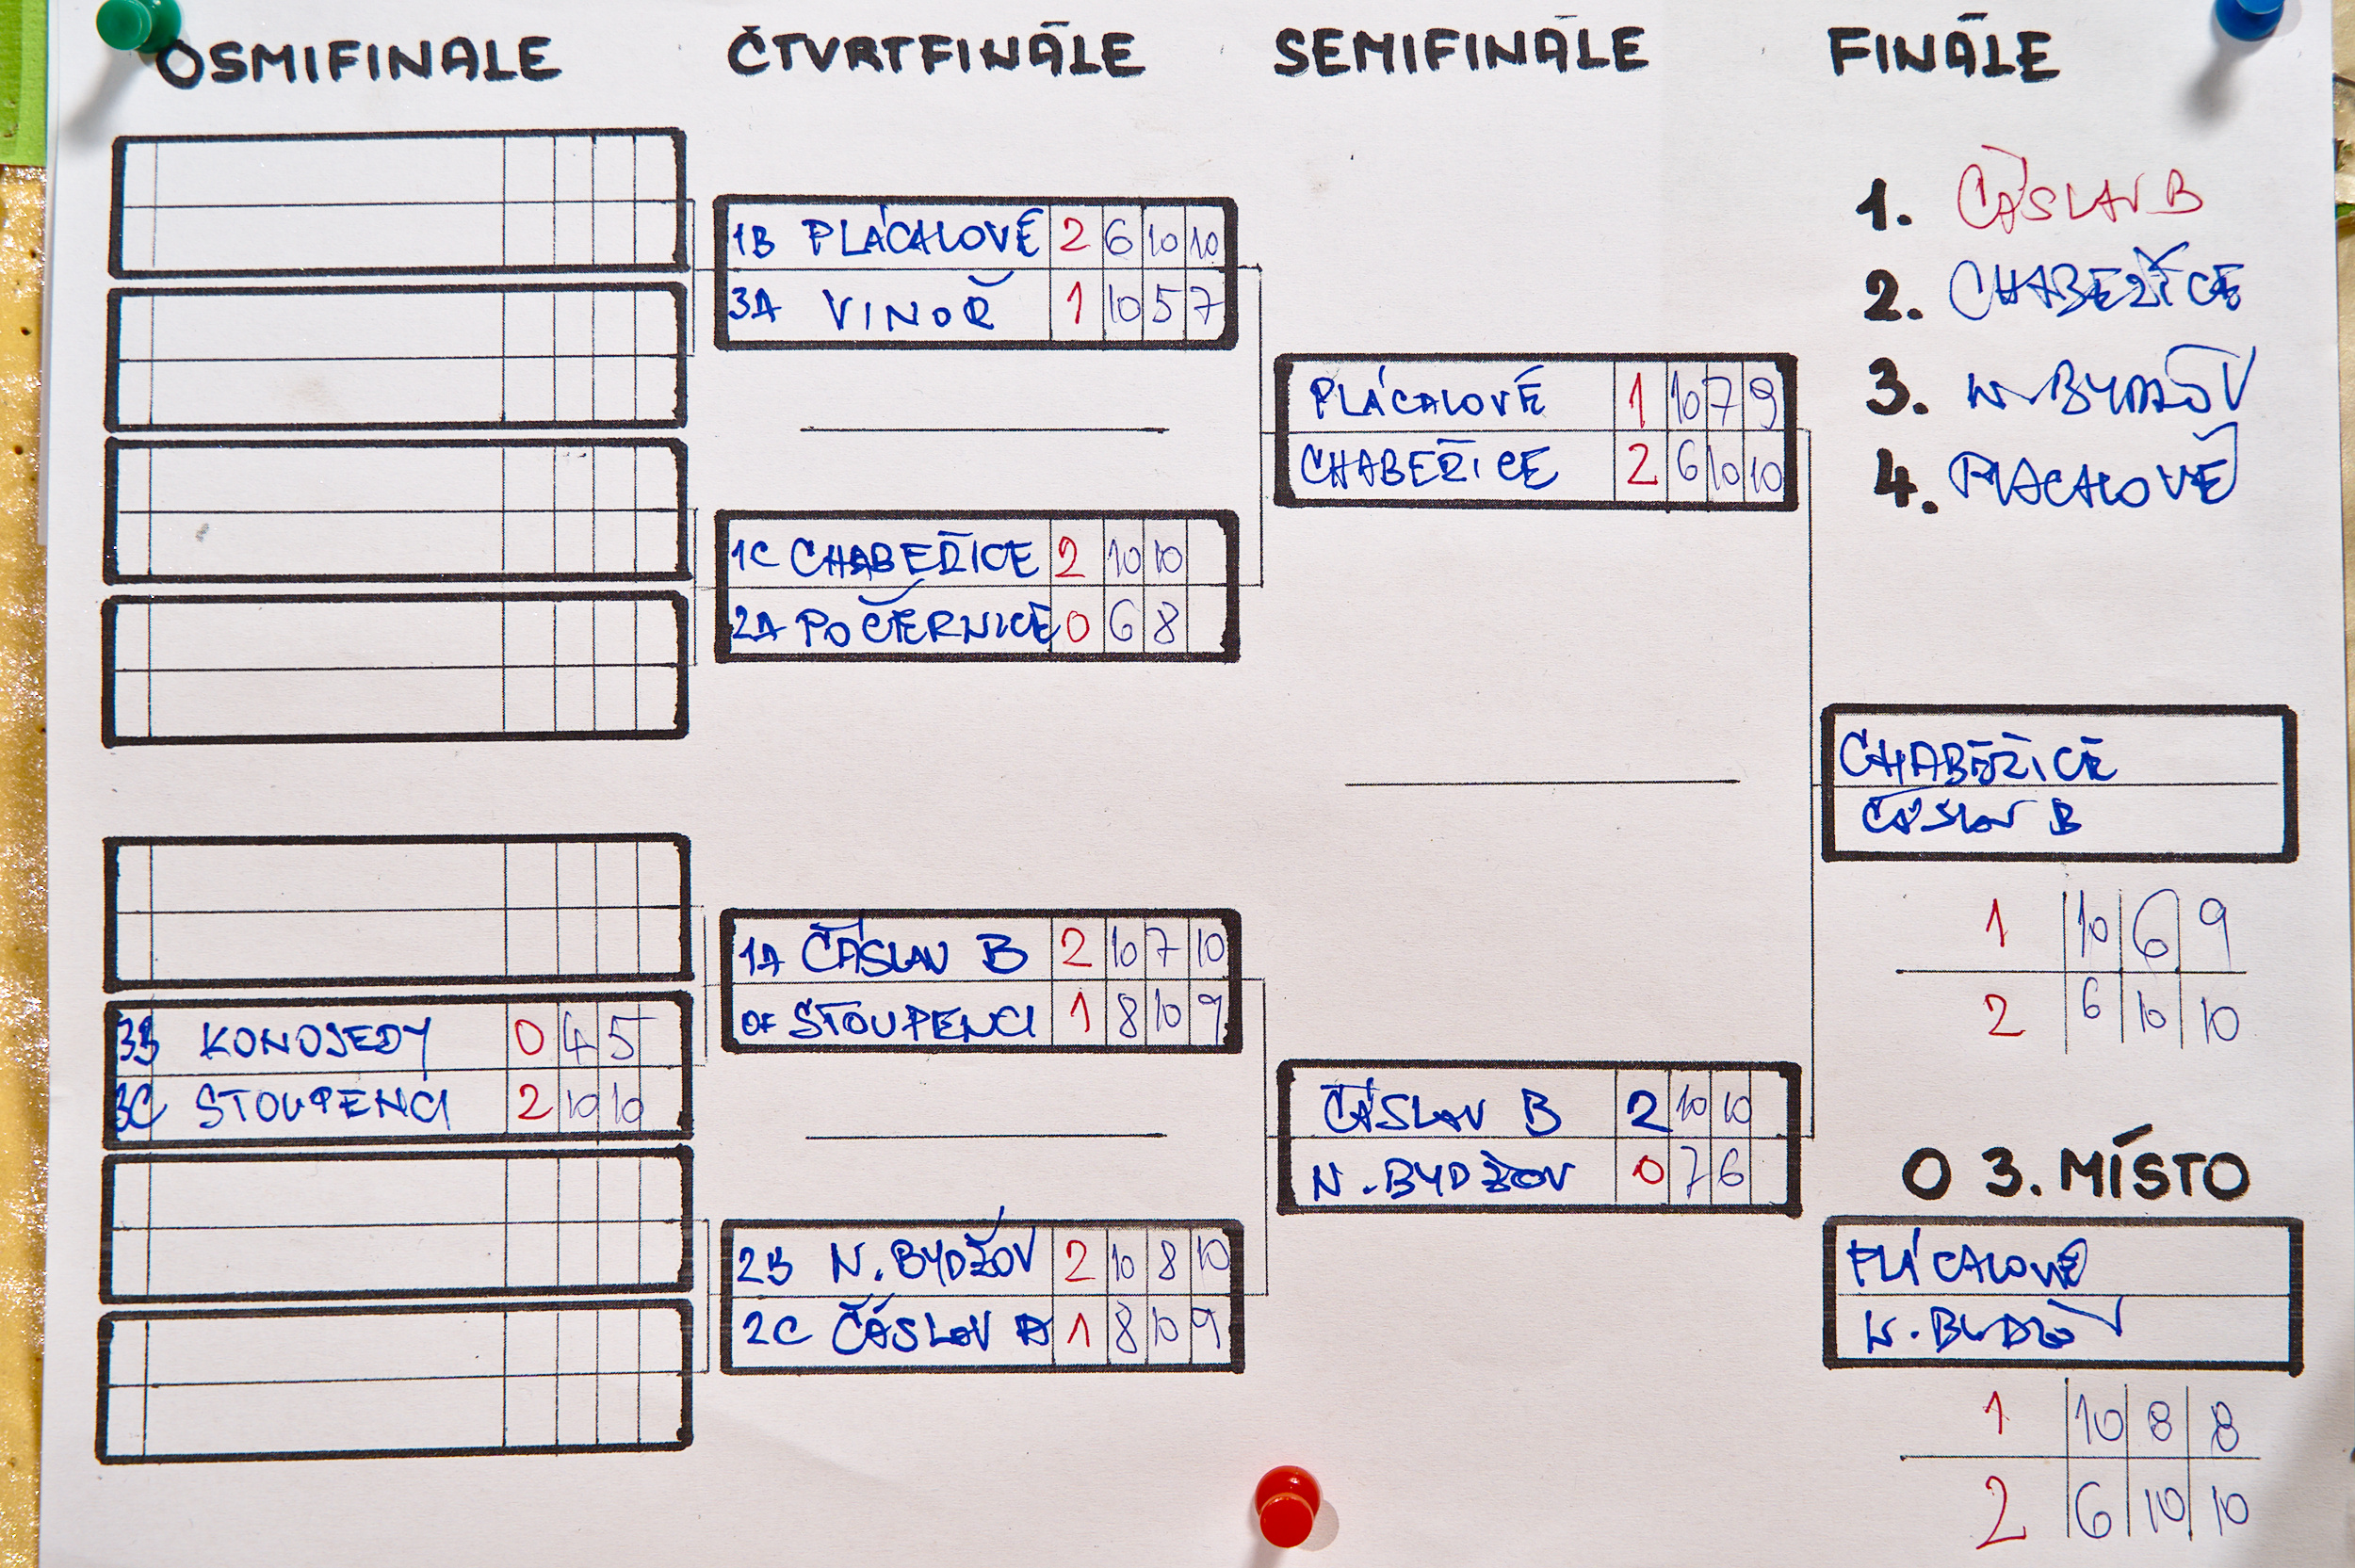 OSMIFINALE
ČTVRTFINÁLE
SEMIFINÁLE
FINÁLE
3B KONOJEDY 0 4 5
3C STOUPENCI 2 10 10
1B PLÁCALOVÉ 2 6 10 10
3A VINOŘ 1 10 5 7
1C CHABEŘICE 2 10 10
2A POČERNICE 0 6 8
1A ČÁSLAV B 2 10 7 10
OF STOUPENCI 1 8 10 9
2B N. BYDŽOV 2 10 8 10
2C ČÁSLAV A 1 8 10 9
PLÁCALOVÉ 1 10 7 9
CHABEŘICE 2 6 10 10
ČÁSLAV B 2 10 10
N. BYDŽOV 0 7 6
1. ČÁSLAV B
2. CHABEŘICE
3. N. BYDŽOV
4. PLÁCALOVÉ
CHABEŘICE
ČÁSLAV B
1 10 6 9
2 6 10 10
O 3. MÍSTO
PLÁCALOVÉ
N. BYDŽOV
1 10 8 8
2 6 10 10